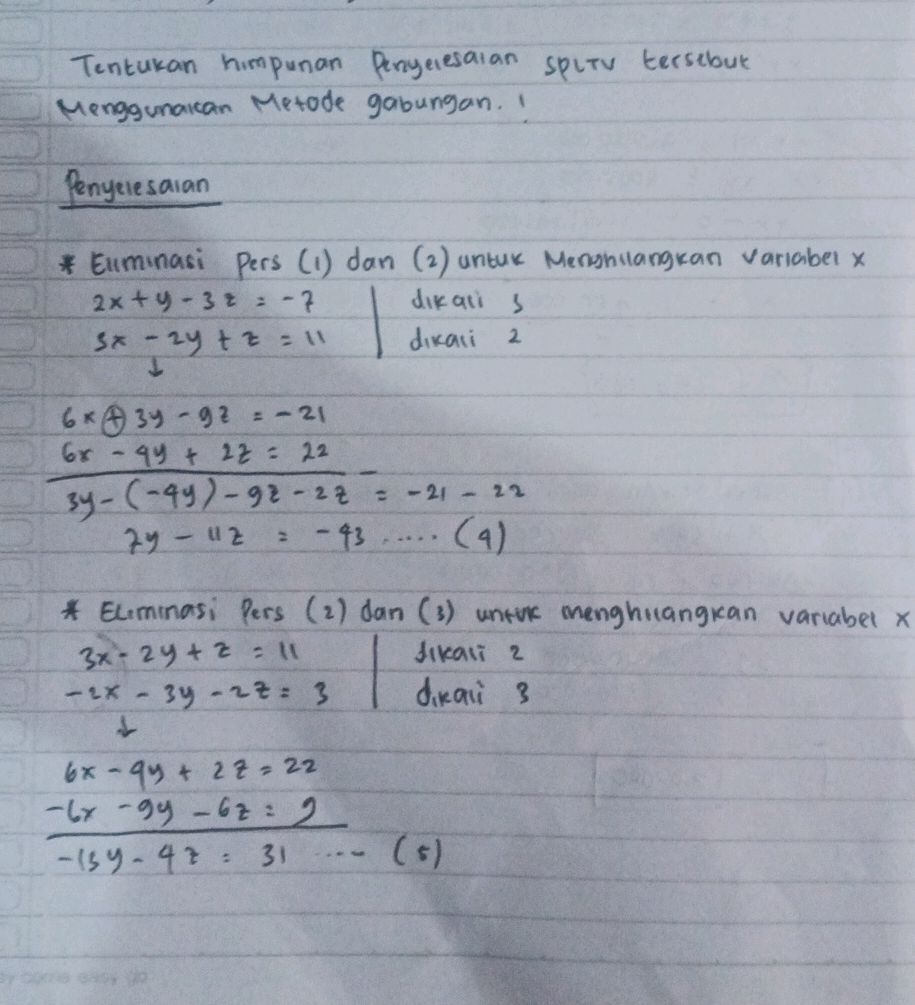 Tentukan himpunan Penyelesaian SPLTV tersebut
Menggunakan Metode gabungan. !
Penyelesaian
* Eliminasi Pers (1) dan (2) untuk Menghilangkan Variabel x
2x + y - 3z = -7 | dikali 3
3x - 2y + z = 11 | dikali 2
↓
6x + 3y - 9z = -21
6x - 4y + 2z = 22
3y - (-4y) - 9z - 2z = -21 - 22
7y - 11z = -43 ..... (4)
* Eliminasi Pers (2) dan (3) untuk menghilangkan variabel x
3x - 2y + z = 11 | dikali 2
-2x - 3y - 2z = 3 | dikali 3
↓
6x - 4y + 2z = 22
-6x - 9y - 6z = 9
-13y - 4z = 31 ..... (5)